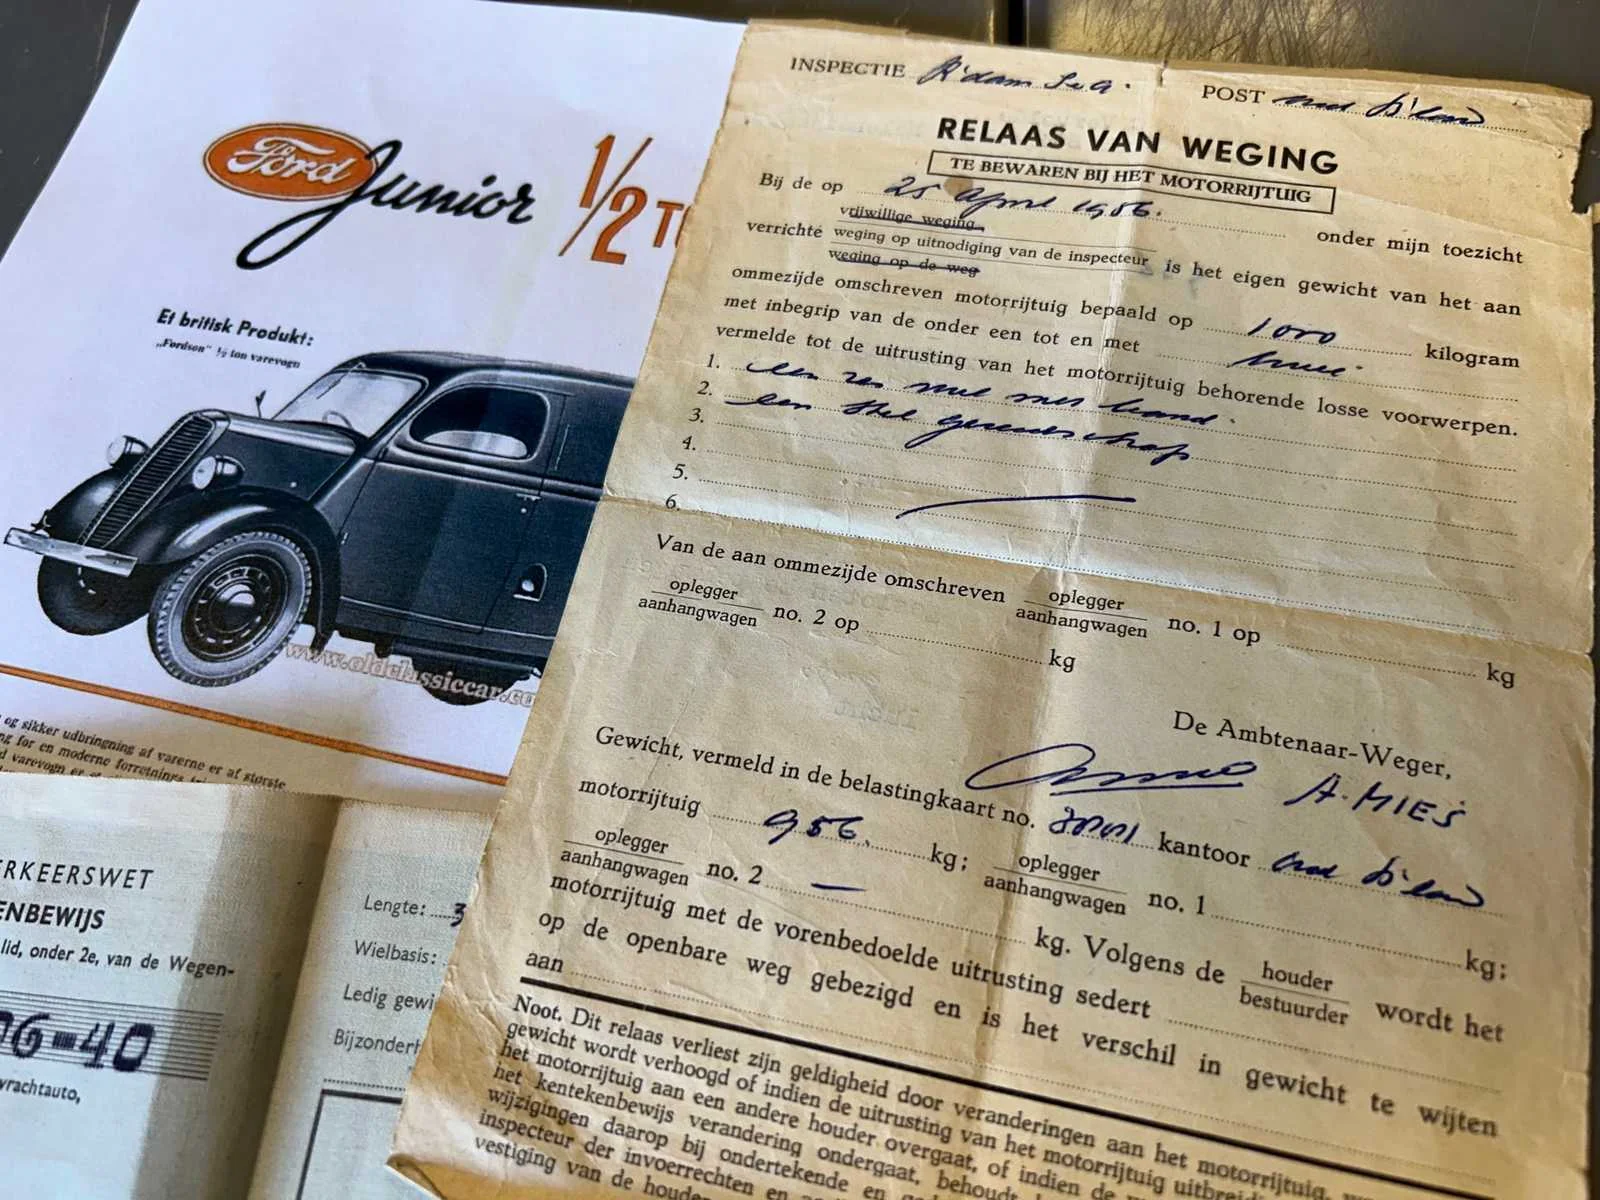 Ford Junior 1/2
Et britisk Produkt:
„Fordson" ½ ton varevogn
www.oldclassiccar.co
og sikker udbringning af varerne er af største
for en moderne forretnings
varevogn er
ERKEERSWET
ENBEWIJS
lid, onder 2e, van de Wegen-
06-40
vrachtauto,
Lengte: 3
Wielbasis:
Ledig gewi
Bijzonderh
INSPECTIE R'dam POST oud B'land
RELAAS VAN WEGING
TE BEWAREN BIJ HET MOTORRIJTUIG
Bij de op 25 April 1956. onder mijn toezicht
vrijwillige weging
verrichte weging op uitnodiging van de inspecteur is het eigen gewicht van het aan
weging op de weg
ommezijde omschreven motorrijtuig bepaald op 1000 kilogram
met inbegrip van de onder een tot en met twee
vermelde tot de uitrusting van het motorrijtuig behorende losse voorwerpen.
1. een res wiel met band.
2. een stel gereedschap
3.
4.
5.
6.
Van de aan ommezijde omschreven oplegger aanhangwagen no. 1 op kg
oplegger aanhangwagen no. 2 op kg
De Ambtenaar-Weger,
A. MIES
Gewicht, vermeld in de belastingkaart no. kantoor oud B'land
motorrijtuig 956 kg; oplegger aanhangwagen no. 1 kg;
oplegger aanhangwagen no. 2 — kg. Volgens de houder bestuurder wordt het
motorrijtuig met de vorenbedoelde uitrusting sedert
op de openbare weg gebezigd en is het verschil in gewicht te wijten
aan
Noot. Dit relaas verliest zijn geldigheid door veranderingen aan het motorrijtuig,
gewicht wordt verhoogd of indien de uitrusting van het motorrijtuig uitbreid
het motorrijtuig aan een andere houder overgaat, of indien de
het kentekenbewijs verandering ondergaat, behoudt
wijzigingen daarop bij ondertekende
inspecteur der invoerrechten en
vestiging van de houder